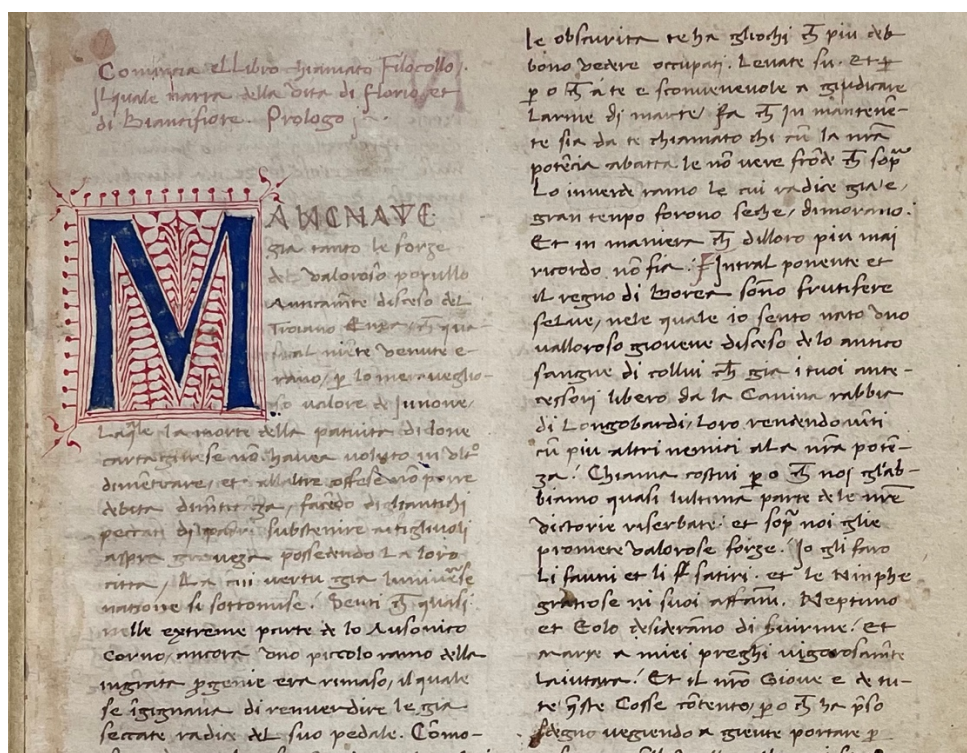 Comincia el Libro chiamato Filocollo.
Il quale narra della vita di florio, et
di Biancifiore. Prologo j°.
MANCNAVE
gia tanto le forze
del valoroso popullo
Anticamte disceso del
Troiano Enea, ch qua-
si al niete venute e-
rano, p lo meraveglio-
so valore de Junone,
Laqle la morte della patuita di done
cartaginese nō havea voluto in
dimēticare, et allaltre offese porre
debita dimtica za, facēdo di gliantichi
peccati di substenire ai figliuoli
aspra graveza possedendo La loro
citta, La cui vertu gia luniv̄se
natione si sottomise. Senti ch quasi
nelle extreme parte de lo Ausonico
Corno, ancora vno piccolo ramo della
ingrata pgenie era rimaso, il quale
se īgignava di renverdire le gia
seccate radice del suo pedale. Cōmo-
le obscurita te ha gliochi ch piu deb
bono vedere occupati. Levate su. Et p
p o ch á te e sconvenevole a giudicare
Larme di marte, fa ch In mantene-
te sia da te chiamato chi cū la nrā
potēcia abatta le nō vere frōde ch sop
Lo inverde ramo le cui radice gia e,
gran tenpo forono seche, dimorano.
Et in maniera ch dilloro piu mai
ricordo nō fia. Intral ponente et
il regno di Borea sono frutifere
selve, nele quale io sento nato vno
valloroso giovene disceso de lo antico
sangue di collui ch gia i tuoi ante-
cessori libero da la Canina rabbia
di Longobardi, Loro rendendo viti
cū piu altri nemici ala nrā potē-
za. Chiama costui p o ch noi gl'ab-
biamo quasi lultima parte de le nrē
victorie riserbate. et sop noi glie
promete valorose forze. Io gli faro
Li fauni et li satiri. et le Ninphe
graciose ni suoi affani. Neptuno
et Eolo desiderano di s̄uirme. Et
Marte a miei preghi vigorosamte
laiutara. Et il nrō Giove e de tu-
te q̄ste Cosse cōtento, p o ch ha pso
sdegno vegiendo a giente portare p